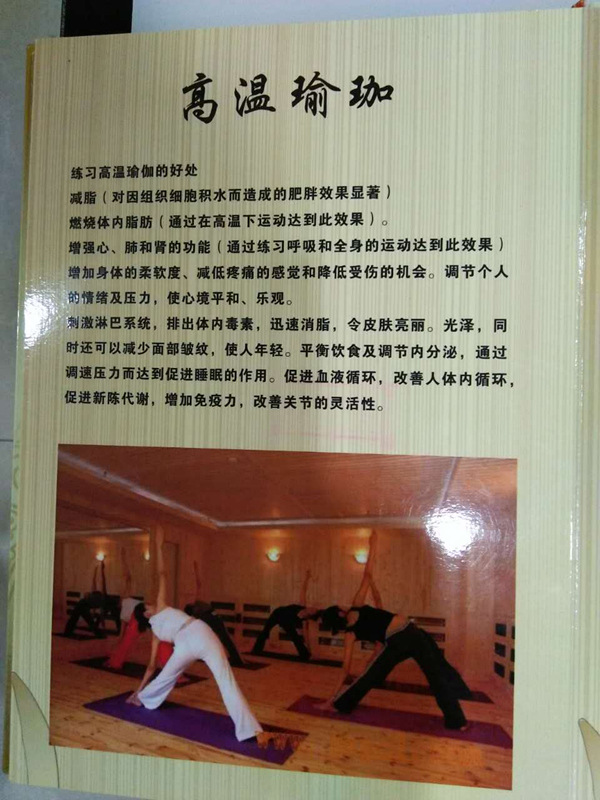 高温瑜珈
练习高温瑜伽的好处
减脂（对因组织细胞积水而造成的肥胖效果显著）
燃烧体内脂肪（通过在高温下运动达到此效果）。
增强心、肺和肾的功能（通过练习呼吸和全身的运动达到此效果）
增加身体的柔软度、减低疼痛的感觉和降低受伤的机会。调节个人
的情绪及压力，使心境平和、乐观。
刺激淋巴系统，排出体内毒素，迅速消脂，令皮肤亮丽。光泽，同
时还可以减少面部皱纹，使人年轻。平衡饮食及调节内分泌，通过
调速压力而达到促进睡眠的作用。促进血液循环，改善人体内循环，
促进新陈代谢，增加免疫力，改善关节的灵活性。